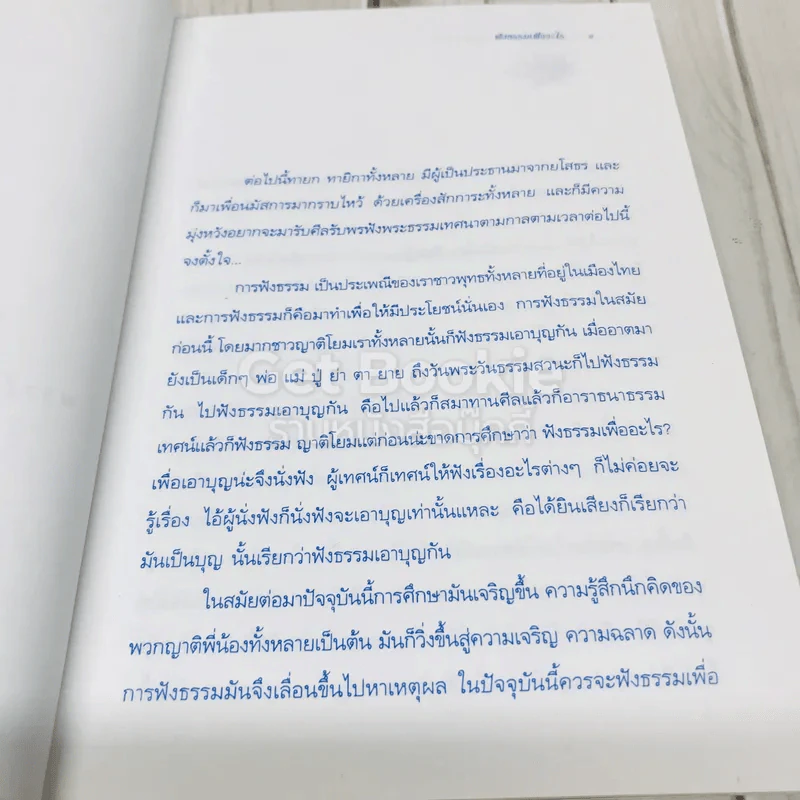 ฟังธรรมเพื่ออะไร
ต่อไปนี้ทายก ทายิกาทั้งหลาย มีผู้เป็นประธานมาจากยโสธร และ
ก็มาเพื่อนมัสการมากราบไหว้ ด้วยเครื่องสักการะทั้งหลาย และก็มีความ
มุ่งหวังอยากจะมารับศีลรับพรฟังพระธรรมเทศนาตามกาลตามเวลาต่อไปนี้
จงตั้งใจ...
การฟังธรรม เป็นประเพณีของเราชาวพุทธทั้งหลายที่อยู่ในเมืองไทย
และการฟังธรรมก็คือมาทำเพื่อให้มีประโยชน์นั่นเอง การฟังธรรมในสมัย
ก่อนนี้ โดยมากชาวญาติโยมเราทั้งหลายนั้นก็ฟังธรรมเอาบุญกัน เมื่ออาตมา
ยังเป็นเด็กๆ พ่อ แม่ ปู่ ย่า ตา ยาย ถึงวันพระวันธรรมสวนะก็ไปฟังธรรม
กัน ไปฟังธรรมเอาบุญกัน คือไปแล้วก็สมาทานศีลแล้วก็อาราธนาธรรม
เทศน์แล้วก็ฟังธรรม ญาติโยมแต่ก่อนน่ะขาดการศึกษาว่า ฟังธรรมเพื่ออะไร?
เพื่อเอาบุญน่ะจึงนั่งฟัง ผู้เทศน์ก็เทศน์ให้ฟังเรื่องอะไรต่างๆ ก็ไม่ค่อยจะ
รู้เรื่อง ไอ้ผู้นั่งฟังก็นั่งฟังจะเอาบุญเท่านั้นแหละ คือได้ยินเสียงก็เรียกว่า
มันเป็นบุญ นั้นเรียกว่าฟังธรรมเอาบุญกัน
ในสมัยต่อมาปัจจุบันนี้การศึกษามันเจริญขึ้น ความรู้สึกนึกคิดของ
พวกญาติพี่น้องทั้งหลายเป็นต้น มันก็วิ่งขึ้นสู่ความเจริญ ความฉลาด ดังนั้น
การฟังธรรมมันจึงเลื่อนขึ้นไปหาเหตุผล ในปัจจุบันนี้ควรจะฟังธรรมเพื่อ
Get Bookie
ร้านหนังสือบุ๊คกี้